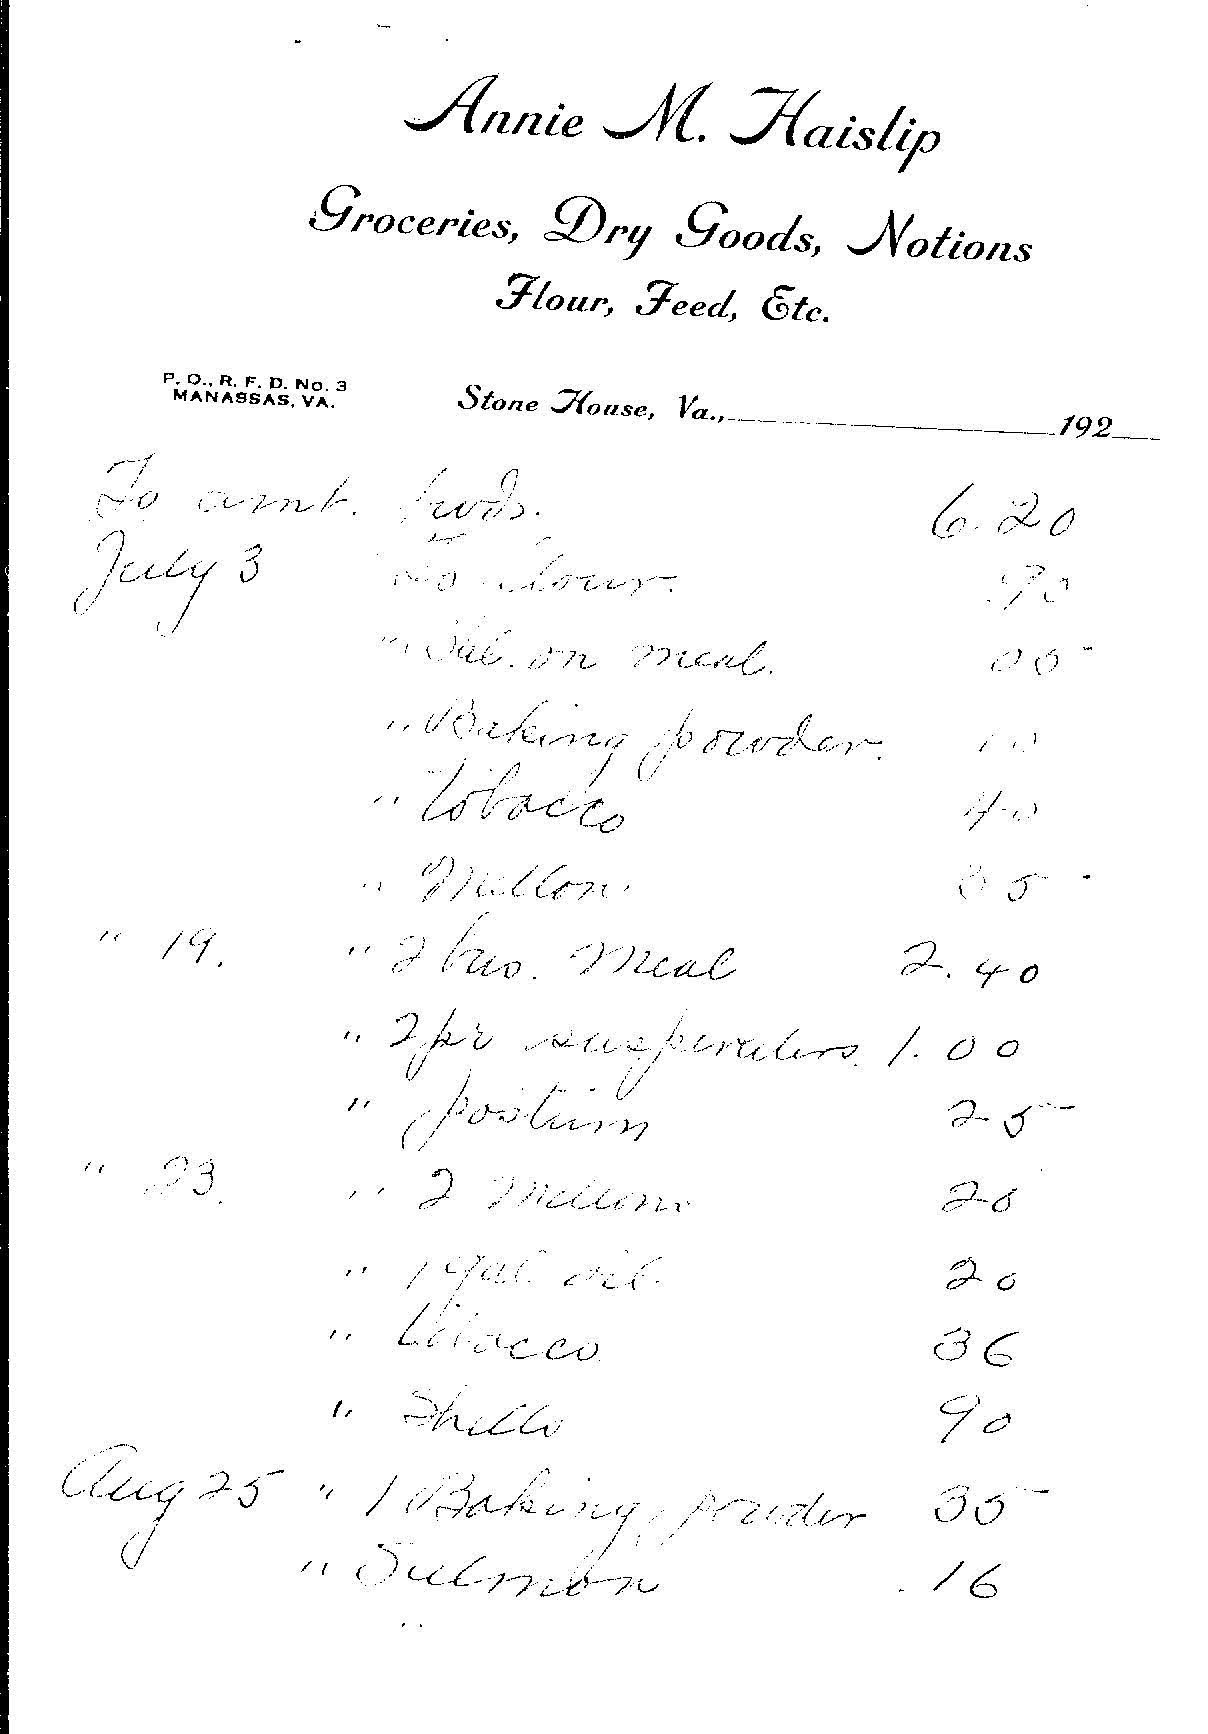 Annie M. Haislip
Groceries, Dry Goods, Notions
Flour, Feed, Etc.
P. O., R. F. D. No. 3
MANASSAS, VA.
Stone House, Va., 192
To amt. fwds. 6.20
July 3 To flour. .90
" Bal. on meal. 05
" Baking powder. 10
" Tobacco 40
" Mellon. 35
" 19. " 2 bus. Meal 2.40
" 2 pr suspenders. 1.00
" postum 25
" 23. " 2 Mellons 20
" 1 gal. oil. 20
" tobacco 36
" Shells 90
Aug 25 " 1 Baking powder 35
" Salmon .16